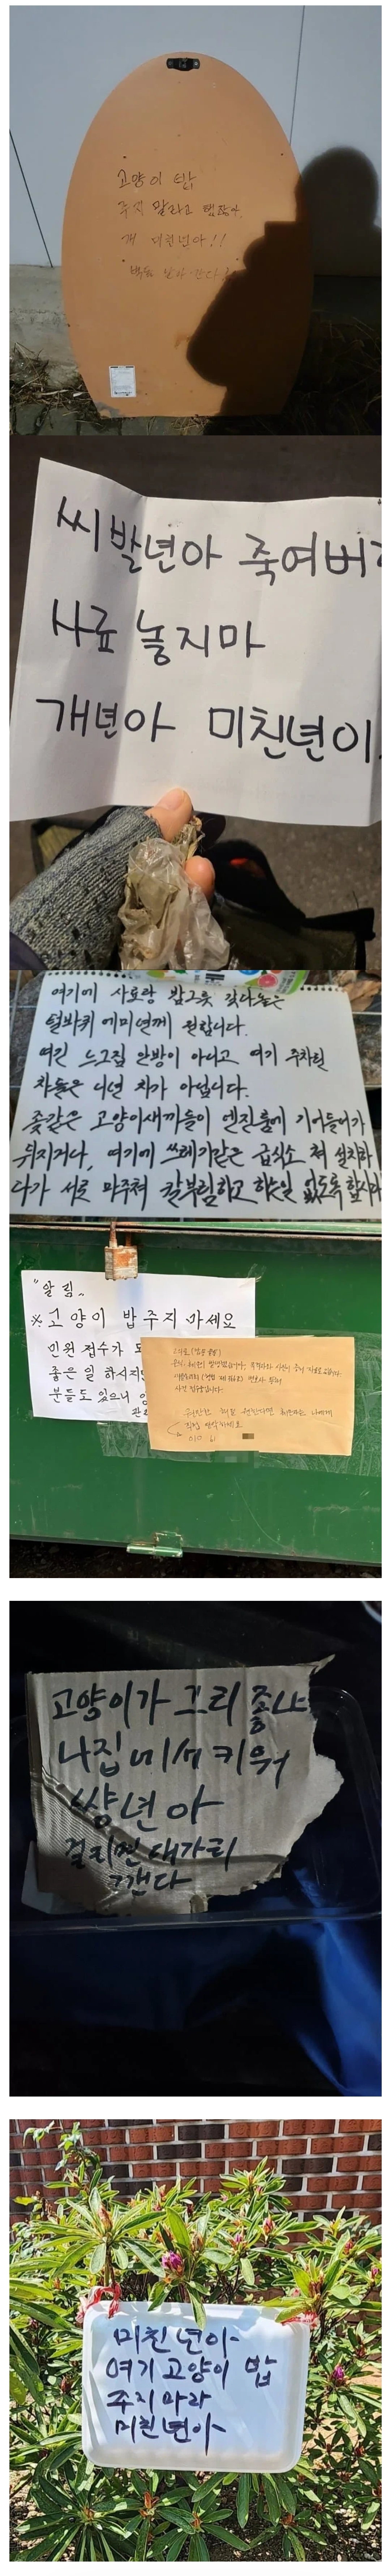 고양이 밥
주지 말라고 했잖아
개
씨발년아 죽여버
사료 놓지마
개년아 미친년이
여기에 사료랑 밥그릇 갖다놓은
털바퀴 에미년께 원합니다.
여긴 느그집 안방이 아니고 여기 주차된
차들은 니년 차가 아닙니다.
좆같은 고양이새끼들이 엔진룸에 기어들어가
뒤지거나, 여기에 쓰레기같은 급식소 쳐 설치하
다가 서로 마주쳐 칼부림하고 하는일 없도록 합시다
"알림"
※고양이 밥주지 마세요
민원 접수가
좋은 일 하시지만
분들도 있으니
직접 연락하세요
010
고양이가 그리 좋냐
니집에서 키워
썅년아
걸리면 대가리
깬다
미친년아
여기 고양이 밥
주지마라
미친년아